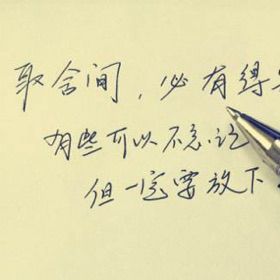 取舍间，必有得
有些可以不忘记
但一定要放下